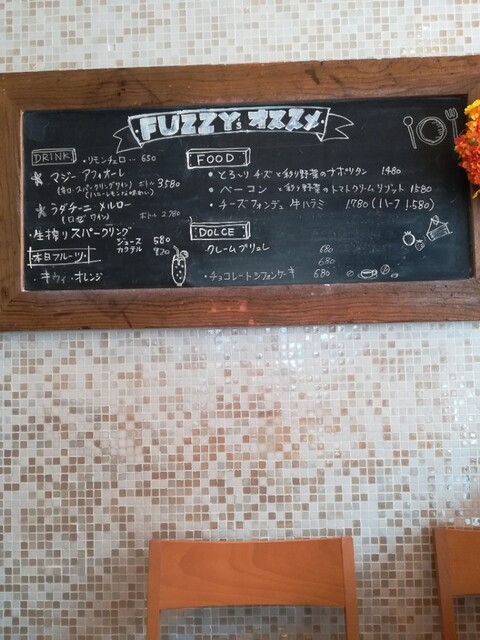 FUZZY's オススメ
DRINK
・リモンチェロ… 650
マジー アフォーレ
(辛口・スパークリングワイン) ボトル 3580
ラダチーニ メルロー
(ロゼワイン) ボトル 2780
・生搾りスパークリング
ジュース 580
カクテル 820
本日フルーツ・
・キウイ・オレンジ
FOOD
・とろ〜りチーズと彩り野菜のナポリタン 1480
・ベーコンと彩り野菜のトマトクリームリゾット 1580
・チーズフォンデュ 牛ハラミ 1780 (ハーフ 1.580)
DOLCE
クレームブリュレ 680
680
・チョコレートシフォンケーキ 680